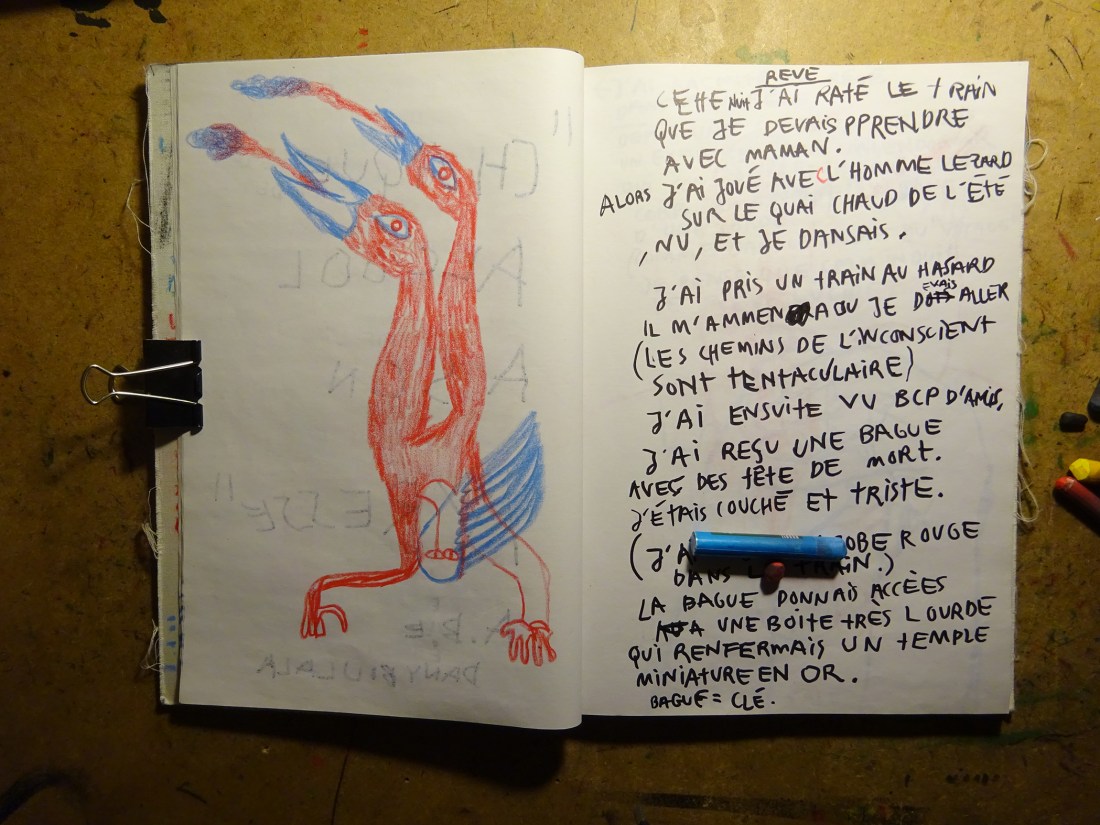 REVE
CETTE NUIT J'AI RATÉ LE TRAIN
QUE JE DEVAIS PPRENDRE
AVEC MAMAN.
ALORS J'AI JOUÉ AVEC L'HOMME LEZARD
SUR LE QUAI CHAUD DE L'ÉTÉ
, NU, ET JE DANSAIS.
J'AI PRIS UN TRAIN AU HASARD
IL M'AMMENRA OU JE DEVAIS ALLER
(LES CHEMINS DE L'INCONSCIENT
SONT TENTACULAIRE)
J'AI ENSUITE VU BCP D'AMIS,
J'AI REÇU UNE BAGUE
AVEÇ DES TÊTE DE MORT.
J'ÉTAIS COUCHÉ ET TRISTE.
(J'A OBE ROUGE
DANS L TRAIN.)
LA BAGUE DONNAIS ACCÈES
A UNE BOITE TRÈS LOURDE
QUI RENFERMAIS UN TEMPLE
MINIATURE EN OR.
BAGUE = CLÉ.